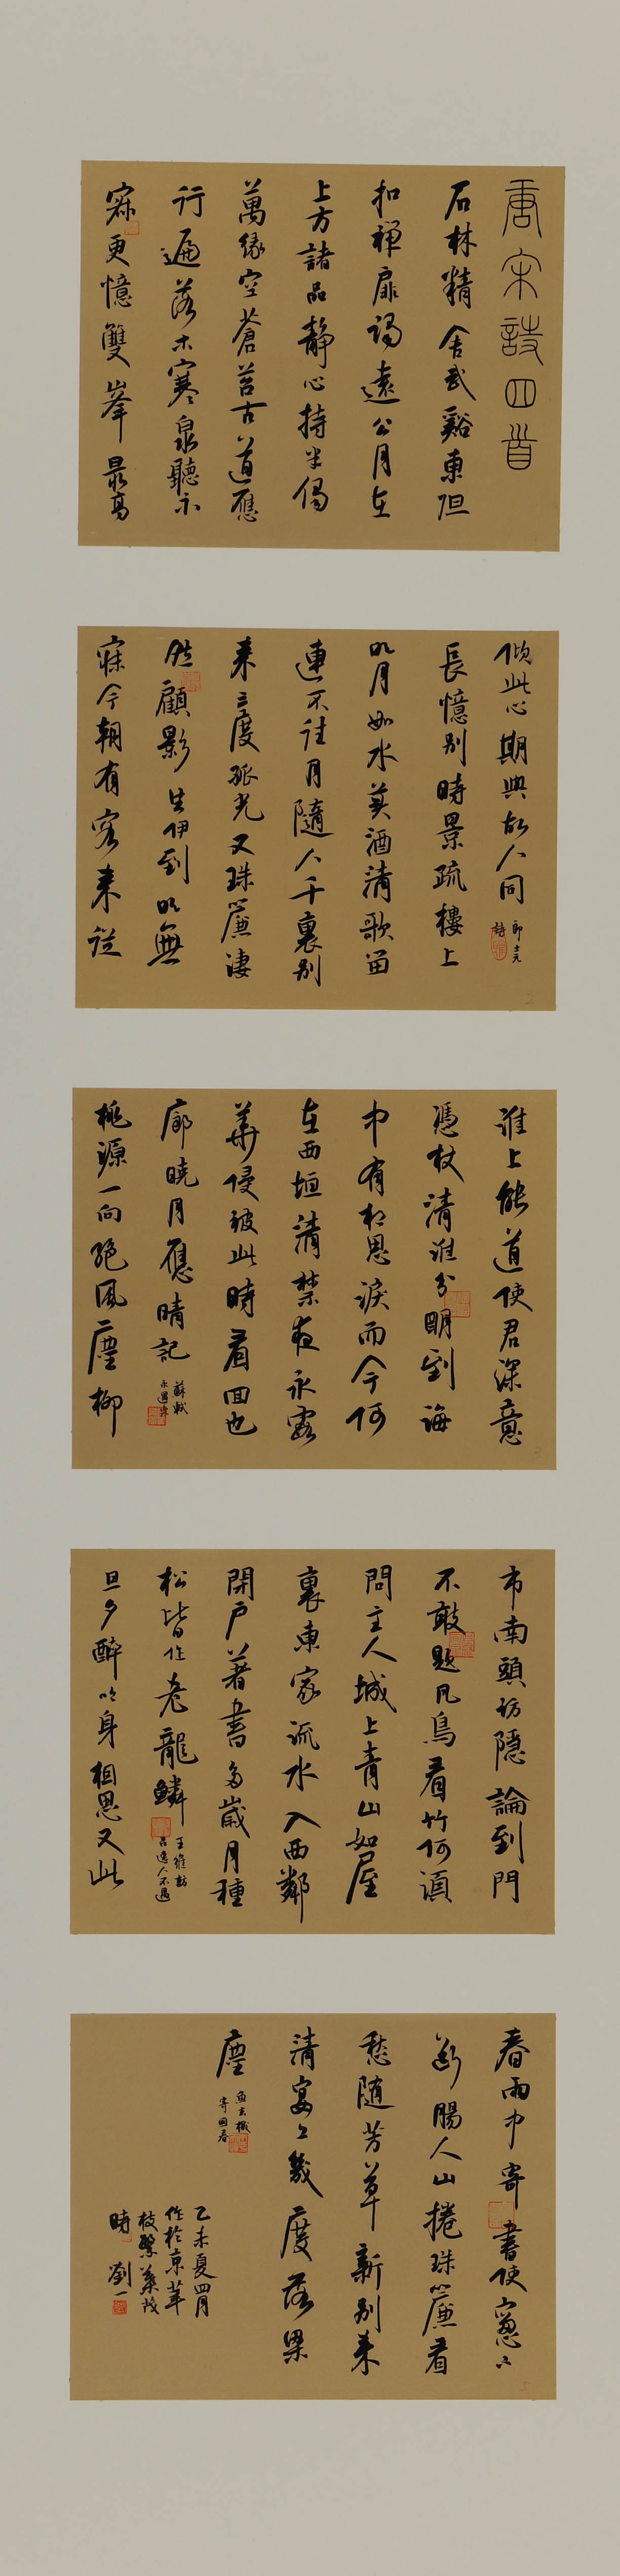 唐宋詩四首
石林精舍武谿東夜
扣禪扉謁遠公月在
上方諸品靜心持半偈
萬緣空蒼苔古道應
行遍落木寒泉聽不
窮更憶雙峯最高
頃此心期與故人同
郎士元
詩
長憶別時景疏樓上
明月如水美酒清歌留
連不住月隨人千裏別
來三度孤光又珠簾凄
然顧影共伊到明無
寐今朝有客來從
淮上能道使君深意
憑仗清淮分明到海
中有相思淚而今何
在西垣清禁夜永露
華侵被此時看回也
廊曉月應晴記
蘇軾
永遇樂
桃源一向絕風塵柳
市南頭訪隱論到門
不敢題凡鳥看竹何須
問主人城上青山如屋
裏東家流水入西鄰
閉戶著書多歲月種
松皆作老龍鱗
王維訪
呂逸人不遇
旦夕醉吟身相思又此
春雨中寄書使窗下
斷腸人山捲珠簾看
愁隨芳草新別來
清宴上幾度落梁
塵
魚玄機
寄國香
乙未夏四月
作於京華
枝繁葉茂
時劉一